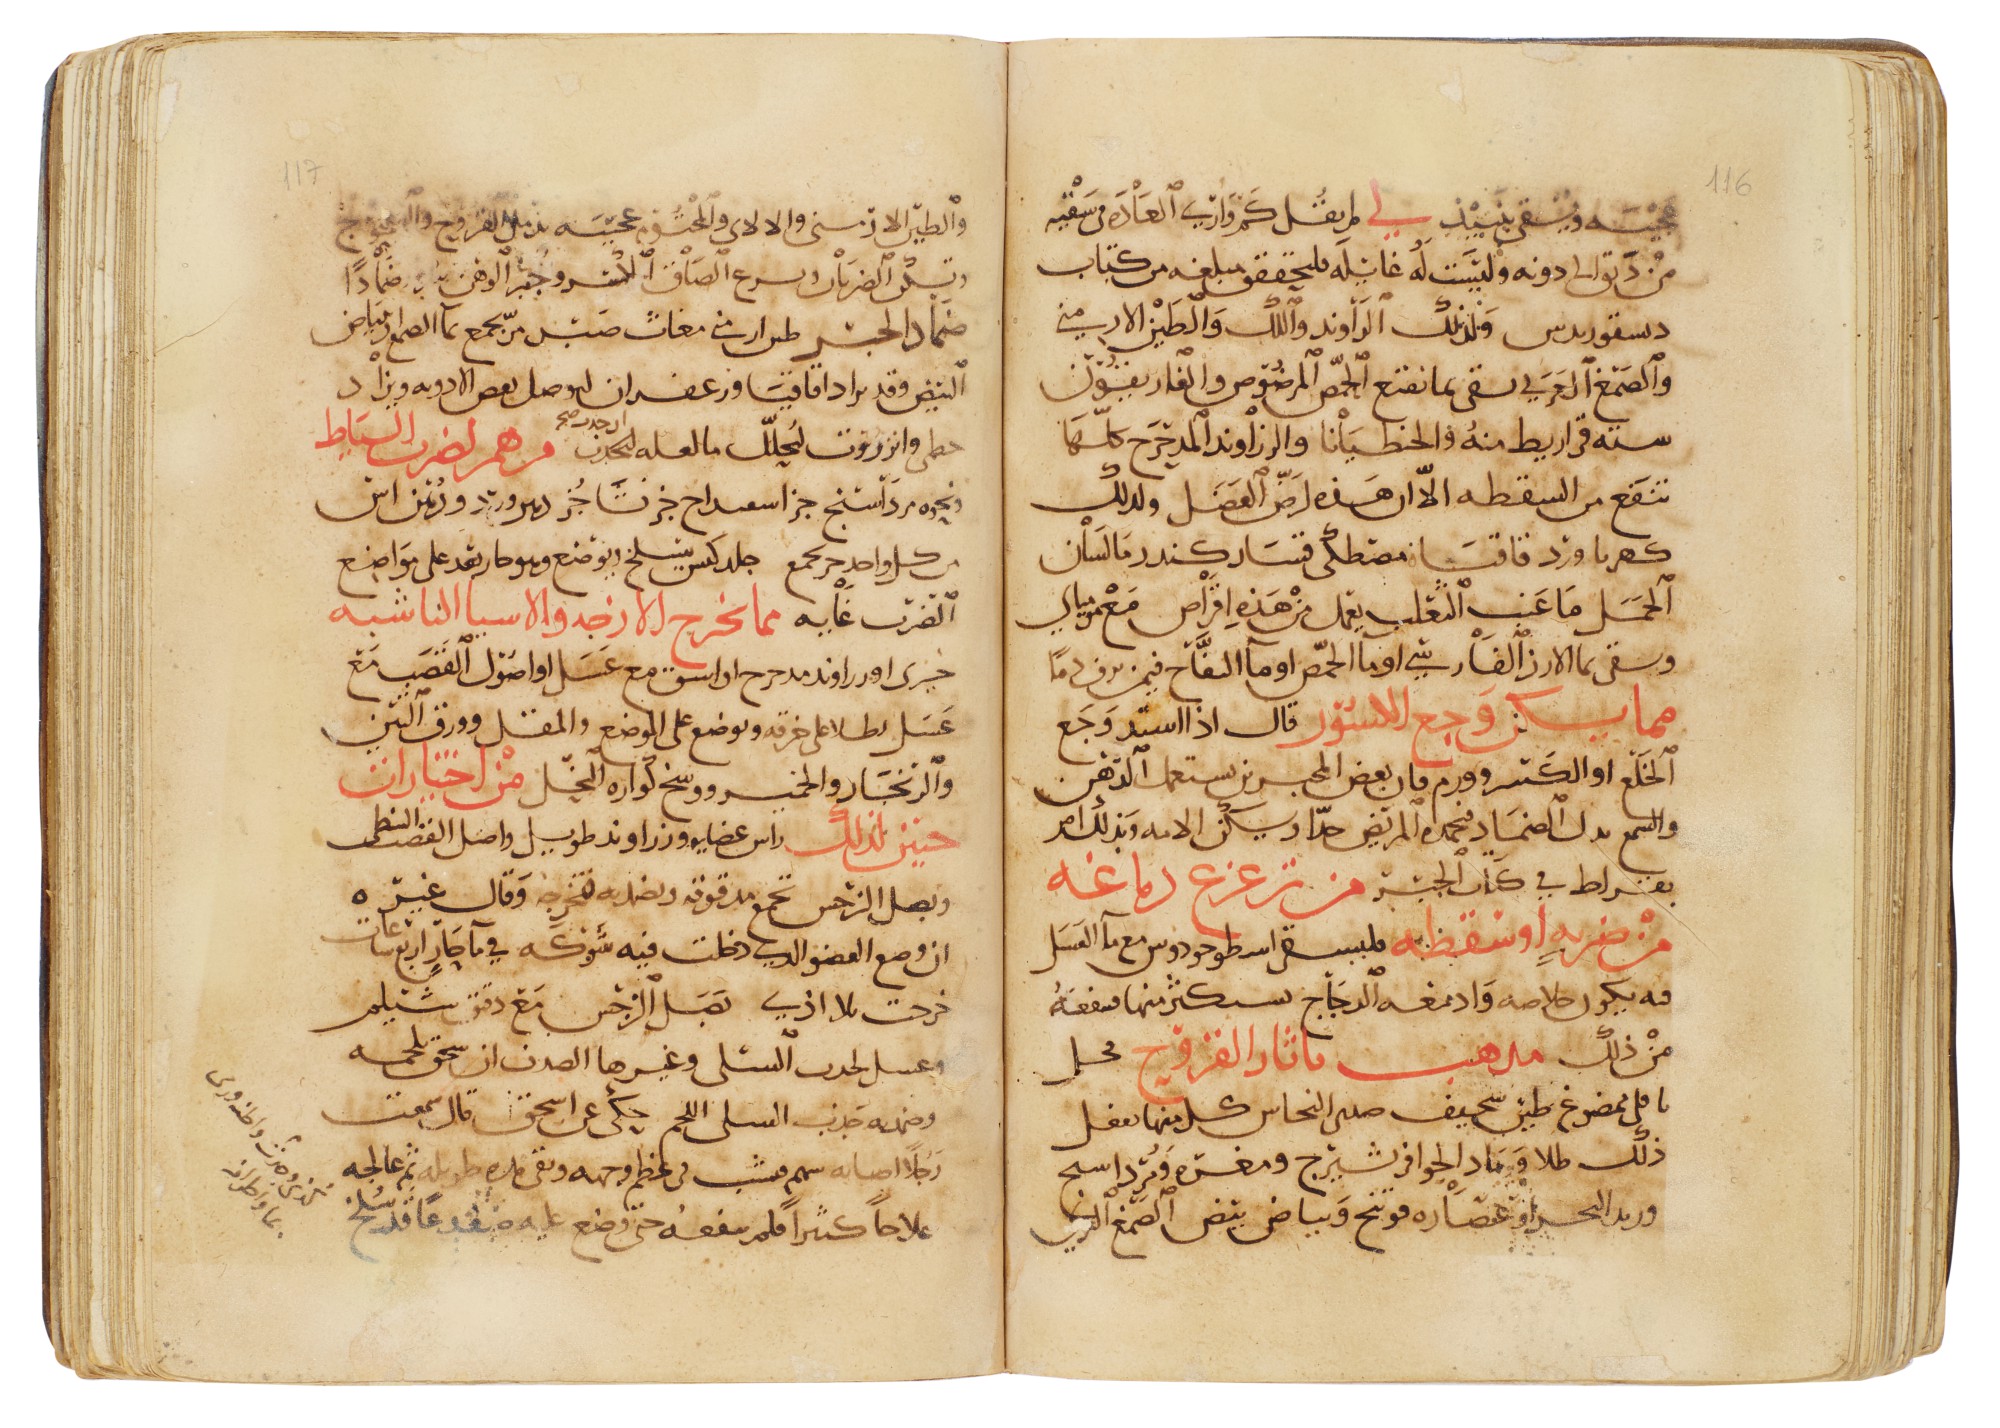 116
عجيبه ويسقى بنبيذ لي لم يقل كم وارى العاده في سقيه
من دانق الى دونه وليست له غايله فليحقق مبلغه من كتاب
دسقوريدس وكذلك الراوند واللك والطين الارمني
والصمغ العربي يسقى بما نقع الحمص المرضوض والغاريقون
سته قراريط منه والجنطيانا والزراوند المدحرج كلها
تنفع من السقطه الا ان هذه لرض العضل ولذلك
كهربا ورد قاقيا مصطكى قشار كندر ما لسان
الحمل ما عنب الثعلب يعمل من هذه اقراص مع موميای
ويسقى بما الارز الفارسي او ما الحمص او ما التفاح فيمن نزف دما
مما يسكن وجع الاسنور قال اذا اشتد وجع
الخلع او الكسر وورم فان بعض المجبرين يستعمل الدهن
والشمع بدل الضماد فيحمده المريض جدا ويسكن الامه وبذلك امر
بقراط في كتاب الجبر من تزعزع دماغه
من ضربه او سقطه فليسقى اسطوخودوس مع ما العسل
فبه يكون خلاصه وادمغه الدجاج يستكثر منها فينفعه
من ذلك مذهب باثار القروح
باقلى ممضوغ طين سخيف صدى النحاس كل منها يفعل
ذلك طلا ورماد الحوافر بشيرج ومغره ومرداسنج
وزبد البحر او عصاره فوتنج وبياض بيض الصمغ العربي
117
والطين الارمني والالاي والمختوم عجيبه تدمل القروح
وتسكن الضربان وتسرع الصاق الكسر وجبر الوهن ضمادا
ضماد الجبر طين ارمني مغاث صبر مر يجمع بما الصمغ او بياض
البيض وقد يزاد اقاقيا وزعفران ليوصل بعض الادويه ويزاد
خطمى وانزروت ليحلل مرهم لضرب السياط
ونحوه مرداسنج جز اسفيداج جز نشا جز دهن ورد
من كل واحد جز يجمع جلد كبش يسلخ ويوضع وهو حار بعد على مواضع
الضرب غايه مما يخرج الازجه والاشيا الناشبه
خبزى او زراوند مدحرج او اشق مع عسل او اصول القصب مع
عسل يطلا على خرقه ويوضع على الموضع والمقل وورق التين
والزنجار والخمير ووسخ كواره النحل من اختيارات
حنين لذلك راس عضايه وزراوند طويل واصل القصب النبطى
وبصل النرجس تجمع مدقوقه ويضمد به فتخرجه وقال غيره
ان وضع العضو الذي دخلت فيه شوكه في ما حار اربع ساعات
خرجت بلا اذى بصل النرجس مع دقيق شيلم
وعسل يجذب السلى وغيرها الصدف ان سحق بلحمه
وضمد به جذب السلى اللحم يحكى عن اسحق قال سمعت
رجلا اصابه سهم فنشب في عظم وجهه وبقى مده طويله ثم عالجه
علاجا كثيرا فلم ينفعه حتى وضع عليه ضفدعا قد سلخ